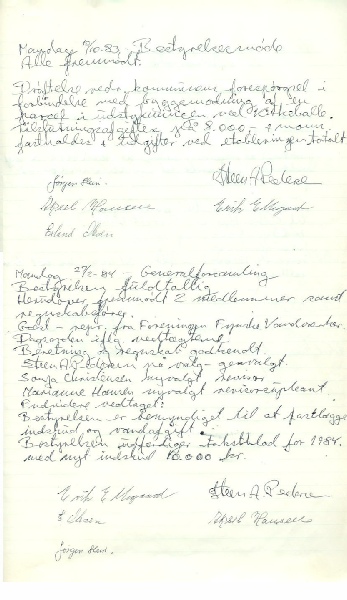 Mandag 10/10.83. Bestyrelsesmøde
Alle fremmødt.
Drøftelse vedr. kommunens forespørgsel i
forbindelse med byggemodning af en
parcel i udstykningen ved
Tilslutningsafgiften kr. 8.000,- + moms
fastholdes + udgifter ved etableringen fortalt
Jørgen
Steen A Pedersen
Aksel Hansen
Erik E
Erland Olsen
Mandag 27/2-84 Generalforsamling
Bestyrelsen fuldtallig
Herudover fremmødt 2 medlemmer samt
regnskabsfører.
Gæst - repr. fra Foreningen Fynske Vandværker.
Dagsorden iflg. vedtægterne.
Beretning og regnskab godkendt.
Steen A. Pedersen på valg - genvalgt.
Sonja Christensen nyvalgt revisor
Marianne Hansen nyvalgt revisorsuppleant.
Endvidere vedtaget:
Bestyrelsen er bemyndiget til at fastlægge
indskud og vandafgift.
Bestyrelsen udfærdiger takstblad for 1984.
med nyt indskud 10.000 kr.
Erik E
Steen A Pedersen
E Olsen
Aksel Hansen
Jørgen